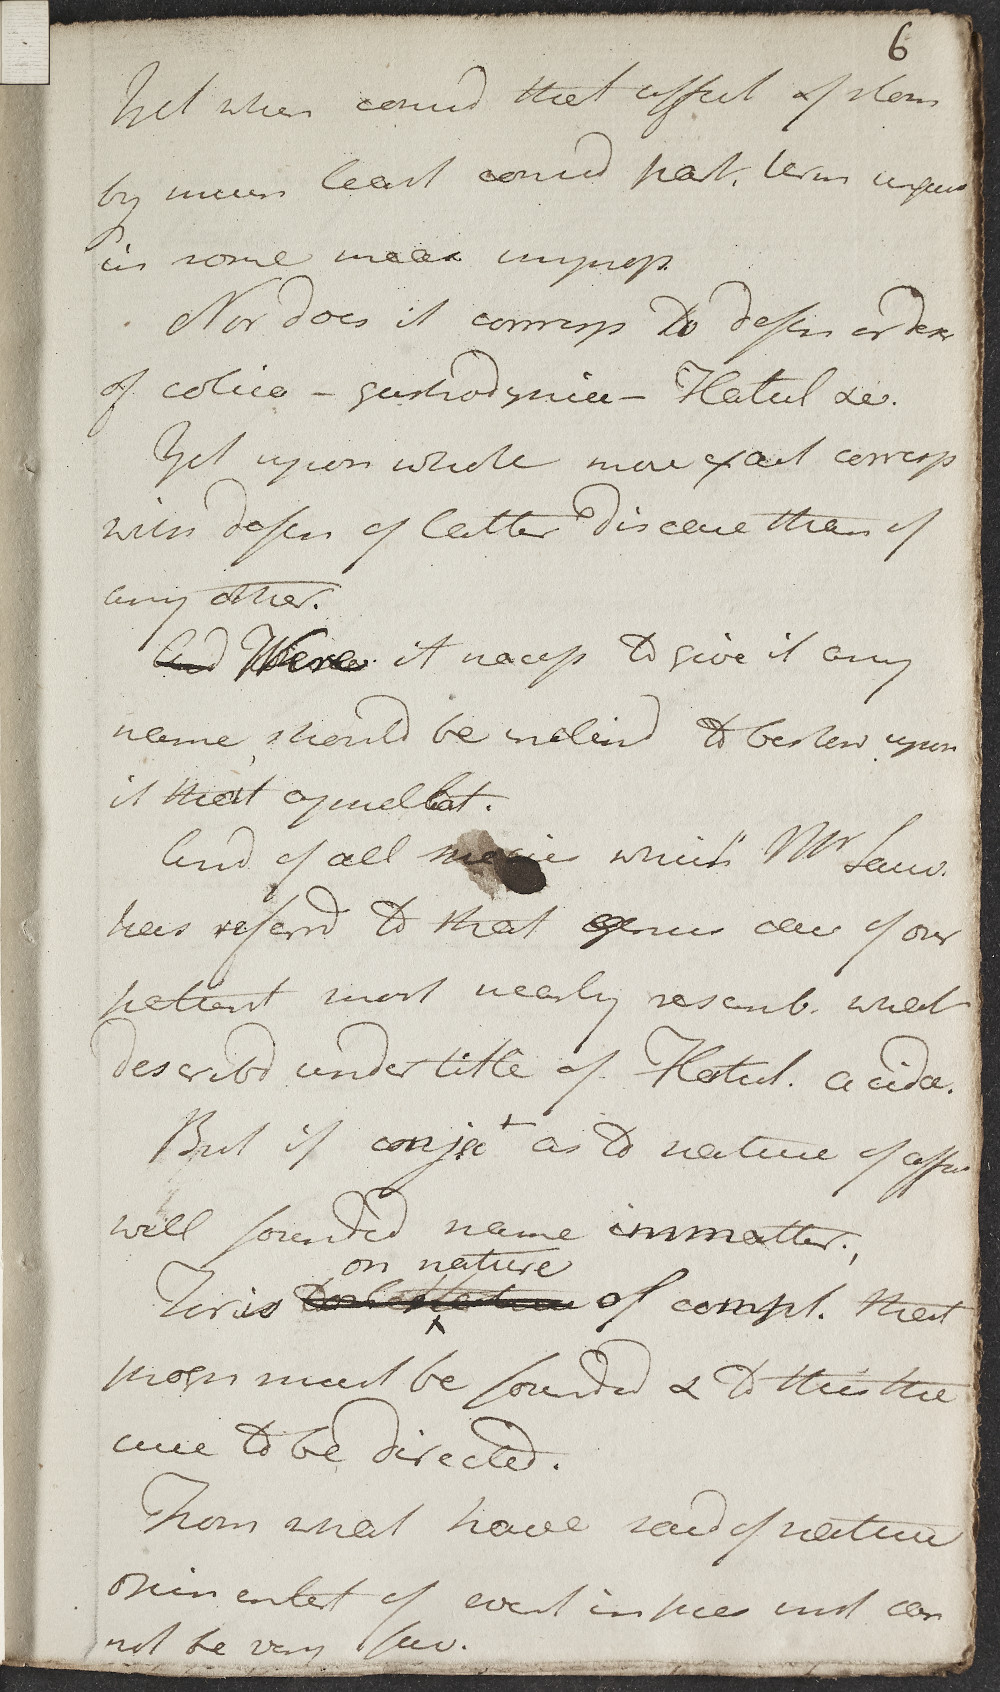 6
Yet when consid that affect of stom
by means least consid part. term
in some meas improp.
Nor does it corresp to defin or char
of colica - gastrodynia - Flatul &c.
Yet upon whole more exact corresp
with defin of latter disease than of
any other.
And Were it necess to give it any
name should be inclind to bestow upon
it that appellat.
And of all species which Mr Sauv.
has referrd to that genus case of our
patient most nearly resemb. what
describd under title of Flatul. acida.
But if conject as to nature of affn
well founded name immatter.
on nature
T'is of compl. that
progn must be founded & to this the
cure to be directed.
From what have said of nature
opinion entert of event in pres inst can
not be very fav.